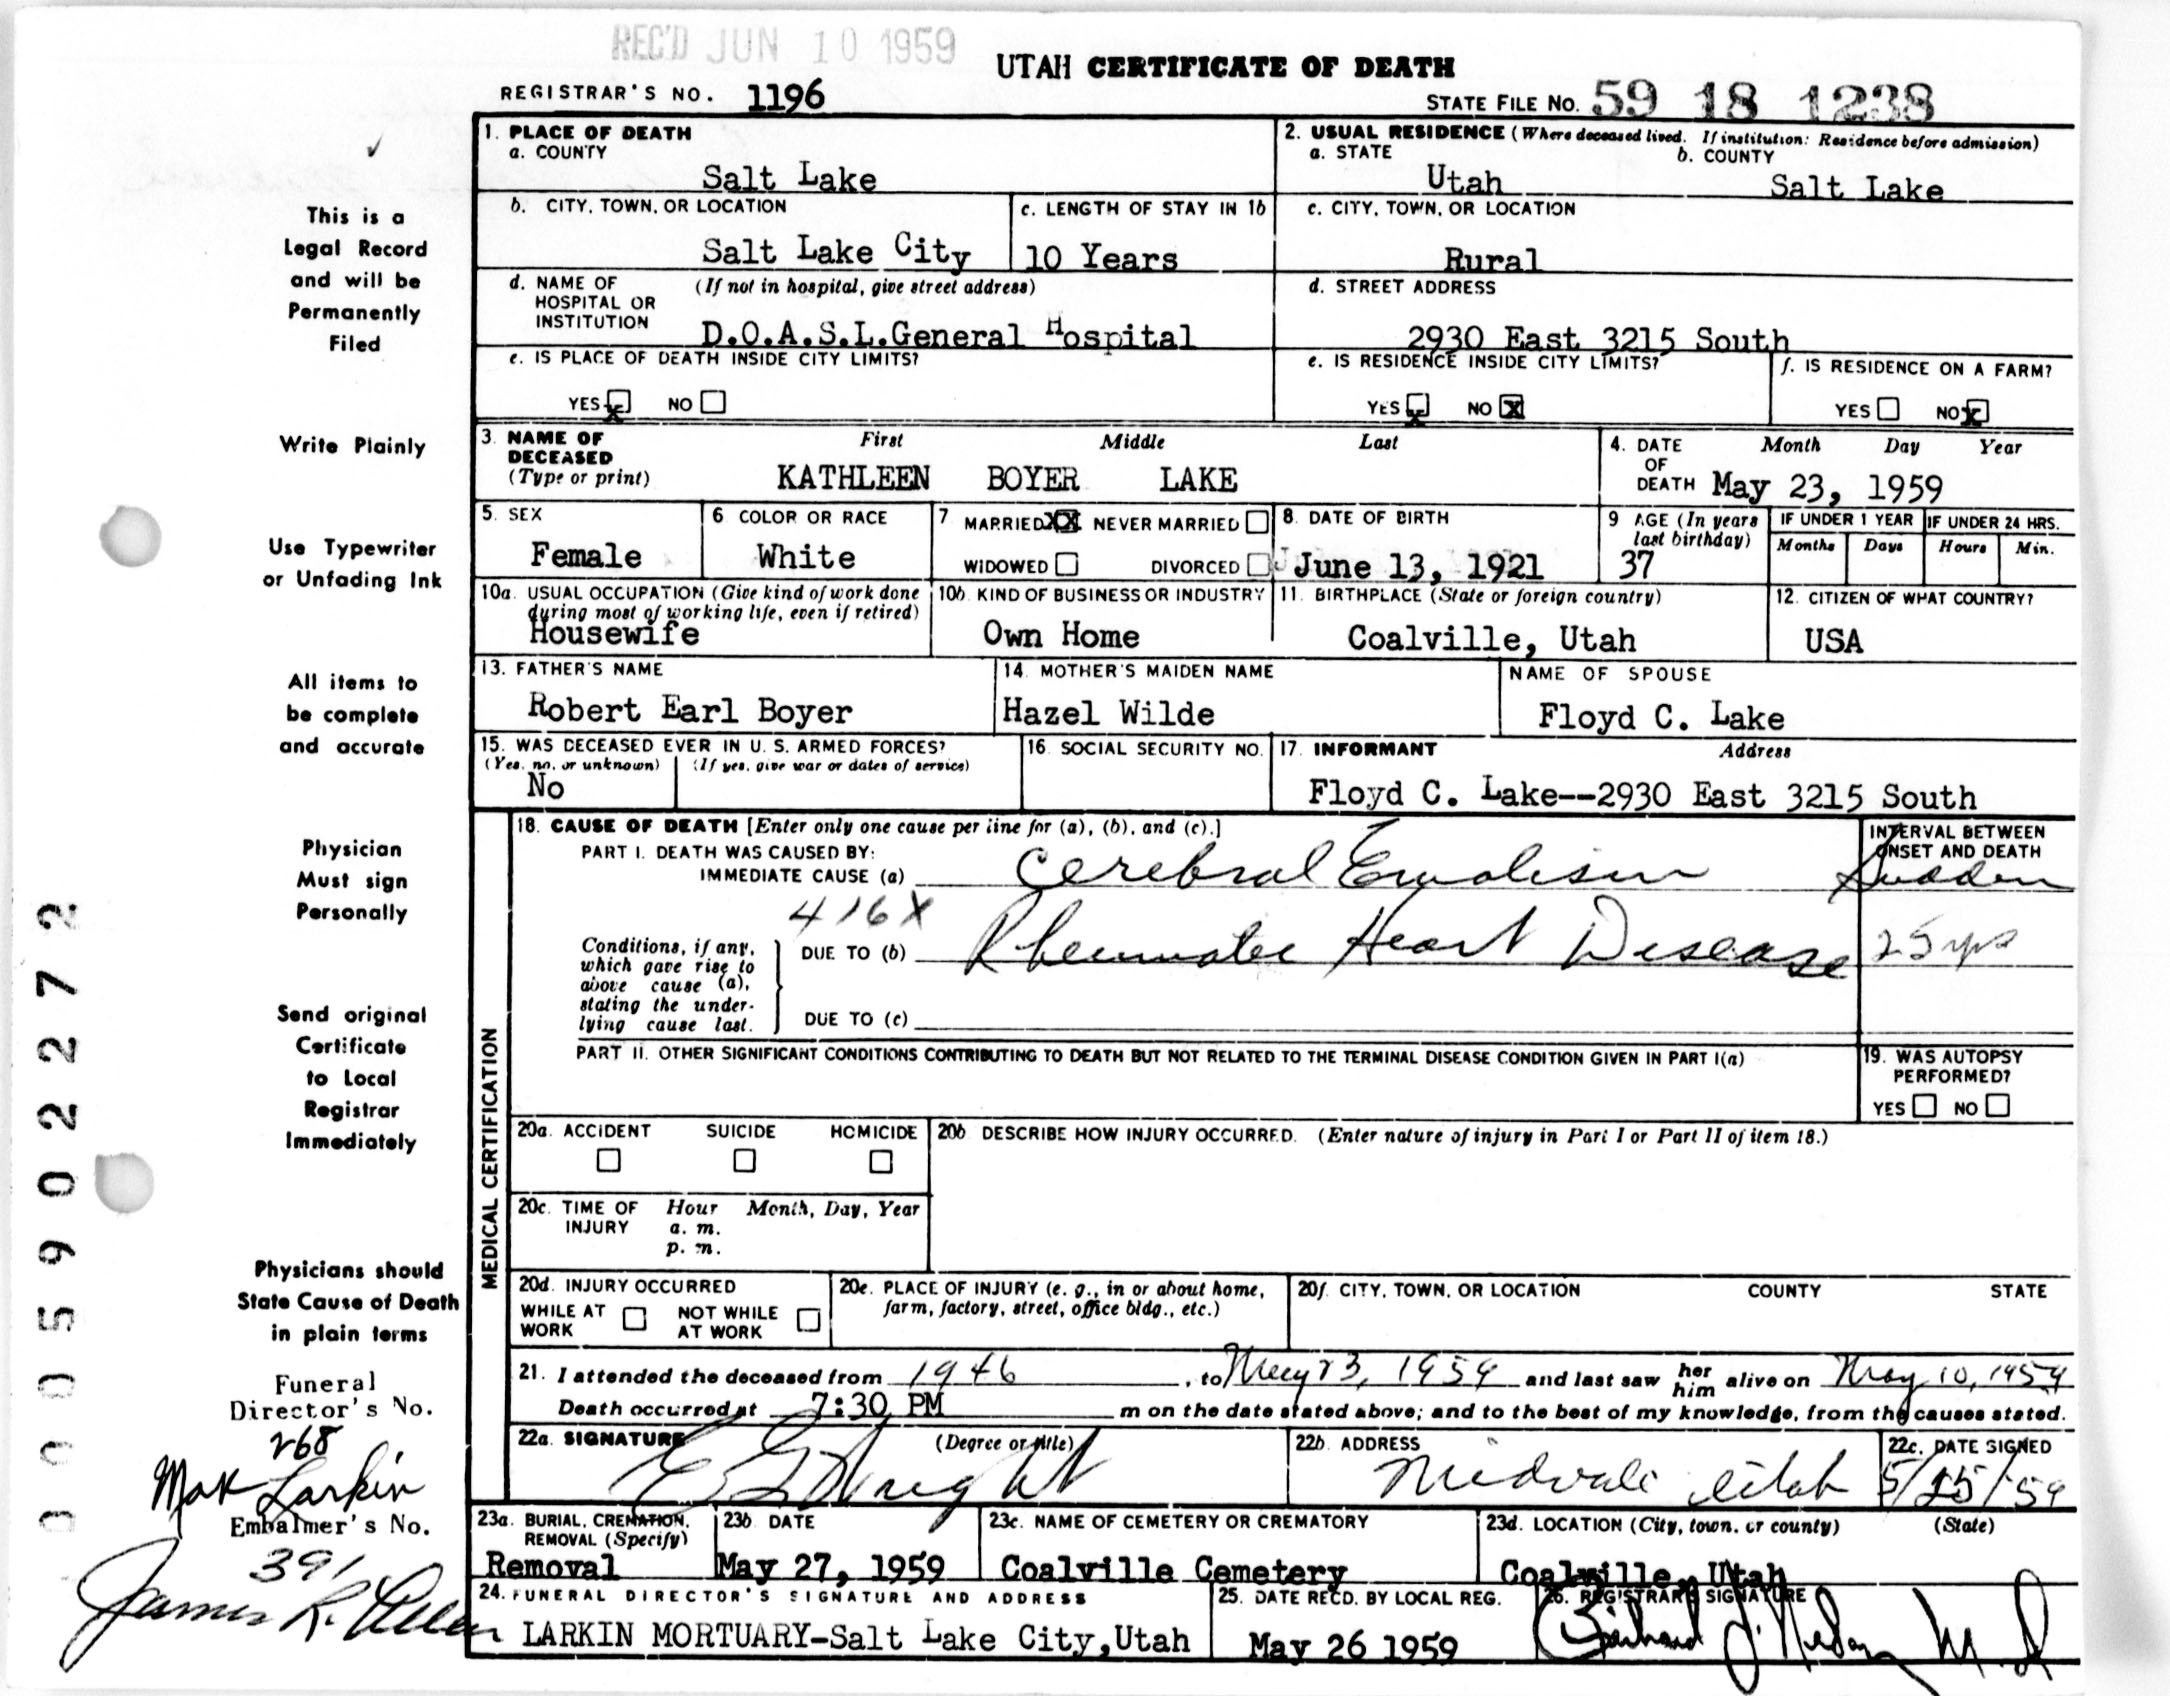 REC'D JUN 10 1959
UTAH CERTIFICATE OF DEATH
REGISTRAR'S NO. 1196
STATE FILE No. 59 18 1238
1. PLACE OF DEATH
a. COUNTY
Salt Lake
2. USUAL RESIDENCE (Where deceased lived. If institution: Residence before admission)
a. STATE
Utah
b. COUNTY
Salt Lake
b. CITY, TOWN, OR LOCATION
Salt Lake City
c. LENGTH OF STAY IN 1b
10 Years
c. CITY, TOWN, OR LOCATION
Rural
d. NAME OF HOSPITAL OR INSTITUTION
(If not in hospital, give street address)
D.O.A.S.L.General Hospital
d. STREET ADDRESS
2930 East 3215 South
e. IS PLACE OF DEATH INSIDE CITY LIMITS?
YES X NO
e. IS RESIDENCE INSIDE CITY LIMITS?
YES X NO X
f. IS RESIDENCE ON A FARM?
YES NO X
3. NAME OF DECEASED
(Type or print)
First Middle Last
KATHLEEN BOYER LAKE
4. DATE OF DEATH
Month Day Year
May 23, 1959
5. SEX
Female
6 COLOR OR RACE
White
7 MARRIED XX NEVER MARRIED
WIDOWED DIVORCED
8. DATE OF BIRTH
June 13, 1921
9 AGE (In years last birthday)
37
IF UNDER 1 YEAR
Months Days
IF UNDER 24 HRS.
Hours Min.
10a. USUAL OCCUPATION (Give kind of work done during most of working life, even if retired)
Housewife
10b. KIND OF BUSINESS OR INDUSTRY
Own Home
11. BIRTHPLACE (State or foreign country)
Coalville, Utah
12. CITIZEN OF WHAT COUNTRY?
USA
13. FATHER'S NAME
Robert Earl Boyer
14. MOTHER'S MAIDEN NAME
Hazel Wilde
NAME OF SPOUSE
Floyd C. Lake
15. WAS DECEASED EVER IN U. S. ARMED FORCES?
(Yes, no, or unknown) (If yes, give war or dates of service)
No
16. SOCIAL SECURITY NO.
17. INFORMANT Address
Floyd C. Lake--2930 East 3215 South
MEDICAL CERTIFICATION
18. CAUSE OF DEATH [Enter only one cause per line for (a), (b), and (c).]
PART I. DEATH WAS CAUSED BY:
IMMEDIATE CAUSE (a) Cerebral Embolism
INTERVAL BETWEEN ONSET AND DEATH
Sudden
416X
Conditions, if any, which gave rise to above cause (a), stating the underlying cause last.
DUE TO (b) Rheumatic Heart Disease
25 yrs
DUE TO (c)
PART II. OTHER SIGNIFICANT CONDITIONS CONTRIBUTING TO DEATH BUT NOT RELATED TO THE TERMINAL DISEASE CONDITION GIVEN IN PART I(a)
19. WAS AUTOPSY PERFORMED?
YES NO
20a. ACCIDENT SUICIDE HOMICIDE
20b DESCRIBE HOW INJURY OCCURRED. (Enter nature of injury in Part I or Part II of item 18.)
20c. TIME OF INJURY
Hour Month, Day, Year
a. m.
p. m.
20d. INJURY OCCURRED
WHILE AT WORK NOT WHILE AT WORK
20e. PLACE OF INJURY (e. g., in or about home, farm, factory, street, office bldg., etc.)
20f. CITY, TOWN, OR LOCATION COUNTY STATE
21. I attended the deceased from 1946, to May 23, 1959 and last saw her him alive on May 10, 1959
Death occurred at 7:30 PM m on the date stated above; and to the best of my knowledge, from the causes stated.
22a. SIGNATURE (Degree or title)
Wright
22b. ADDRESS
Midvale Utah
22c. DATE SIGNED
5/25/59
23a. BURIAL, CREMATION, REMOVAL (Specify)
Removal
23b DATE
May 27, 1959
23c. NAME OF CEMETERY OR CREMATORY
Coalville Cemetery
23d. LOCATION (City, town, or county) (State)
Coalville, Utah
24. FUNERAL DIRECTOR'S SIGNATURE AND ADDRESS
LARKIN MORTUARY-Salt Lake City,Utah
25. DATE RECD. BY LOCAL REG.
May 26 1959
26. REGISTRAR'S SIGNATURE
This is a
Legal Record
and will be
Permanently
Filed
Write Plainly
Use Typewriter
or Unfading Ink
All items to
be complete
and accurate
Physician
Must sign
Personally
Send original
Certificate
to Local
Registrar
Immediately
Physicians should
State Cause of Death
in plain terms
Funeral
Director's No.
268
Max Larkin
Embalmer's No.
391
James R. Allen
000590 2272